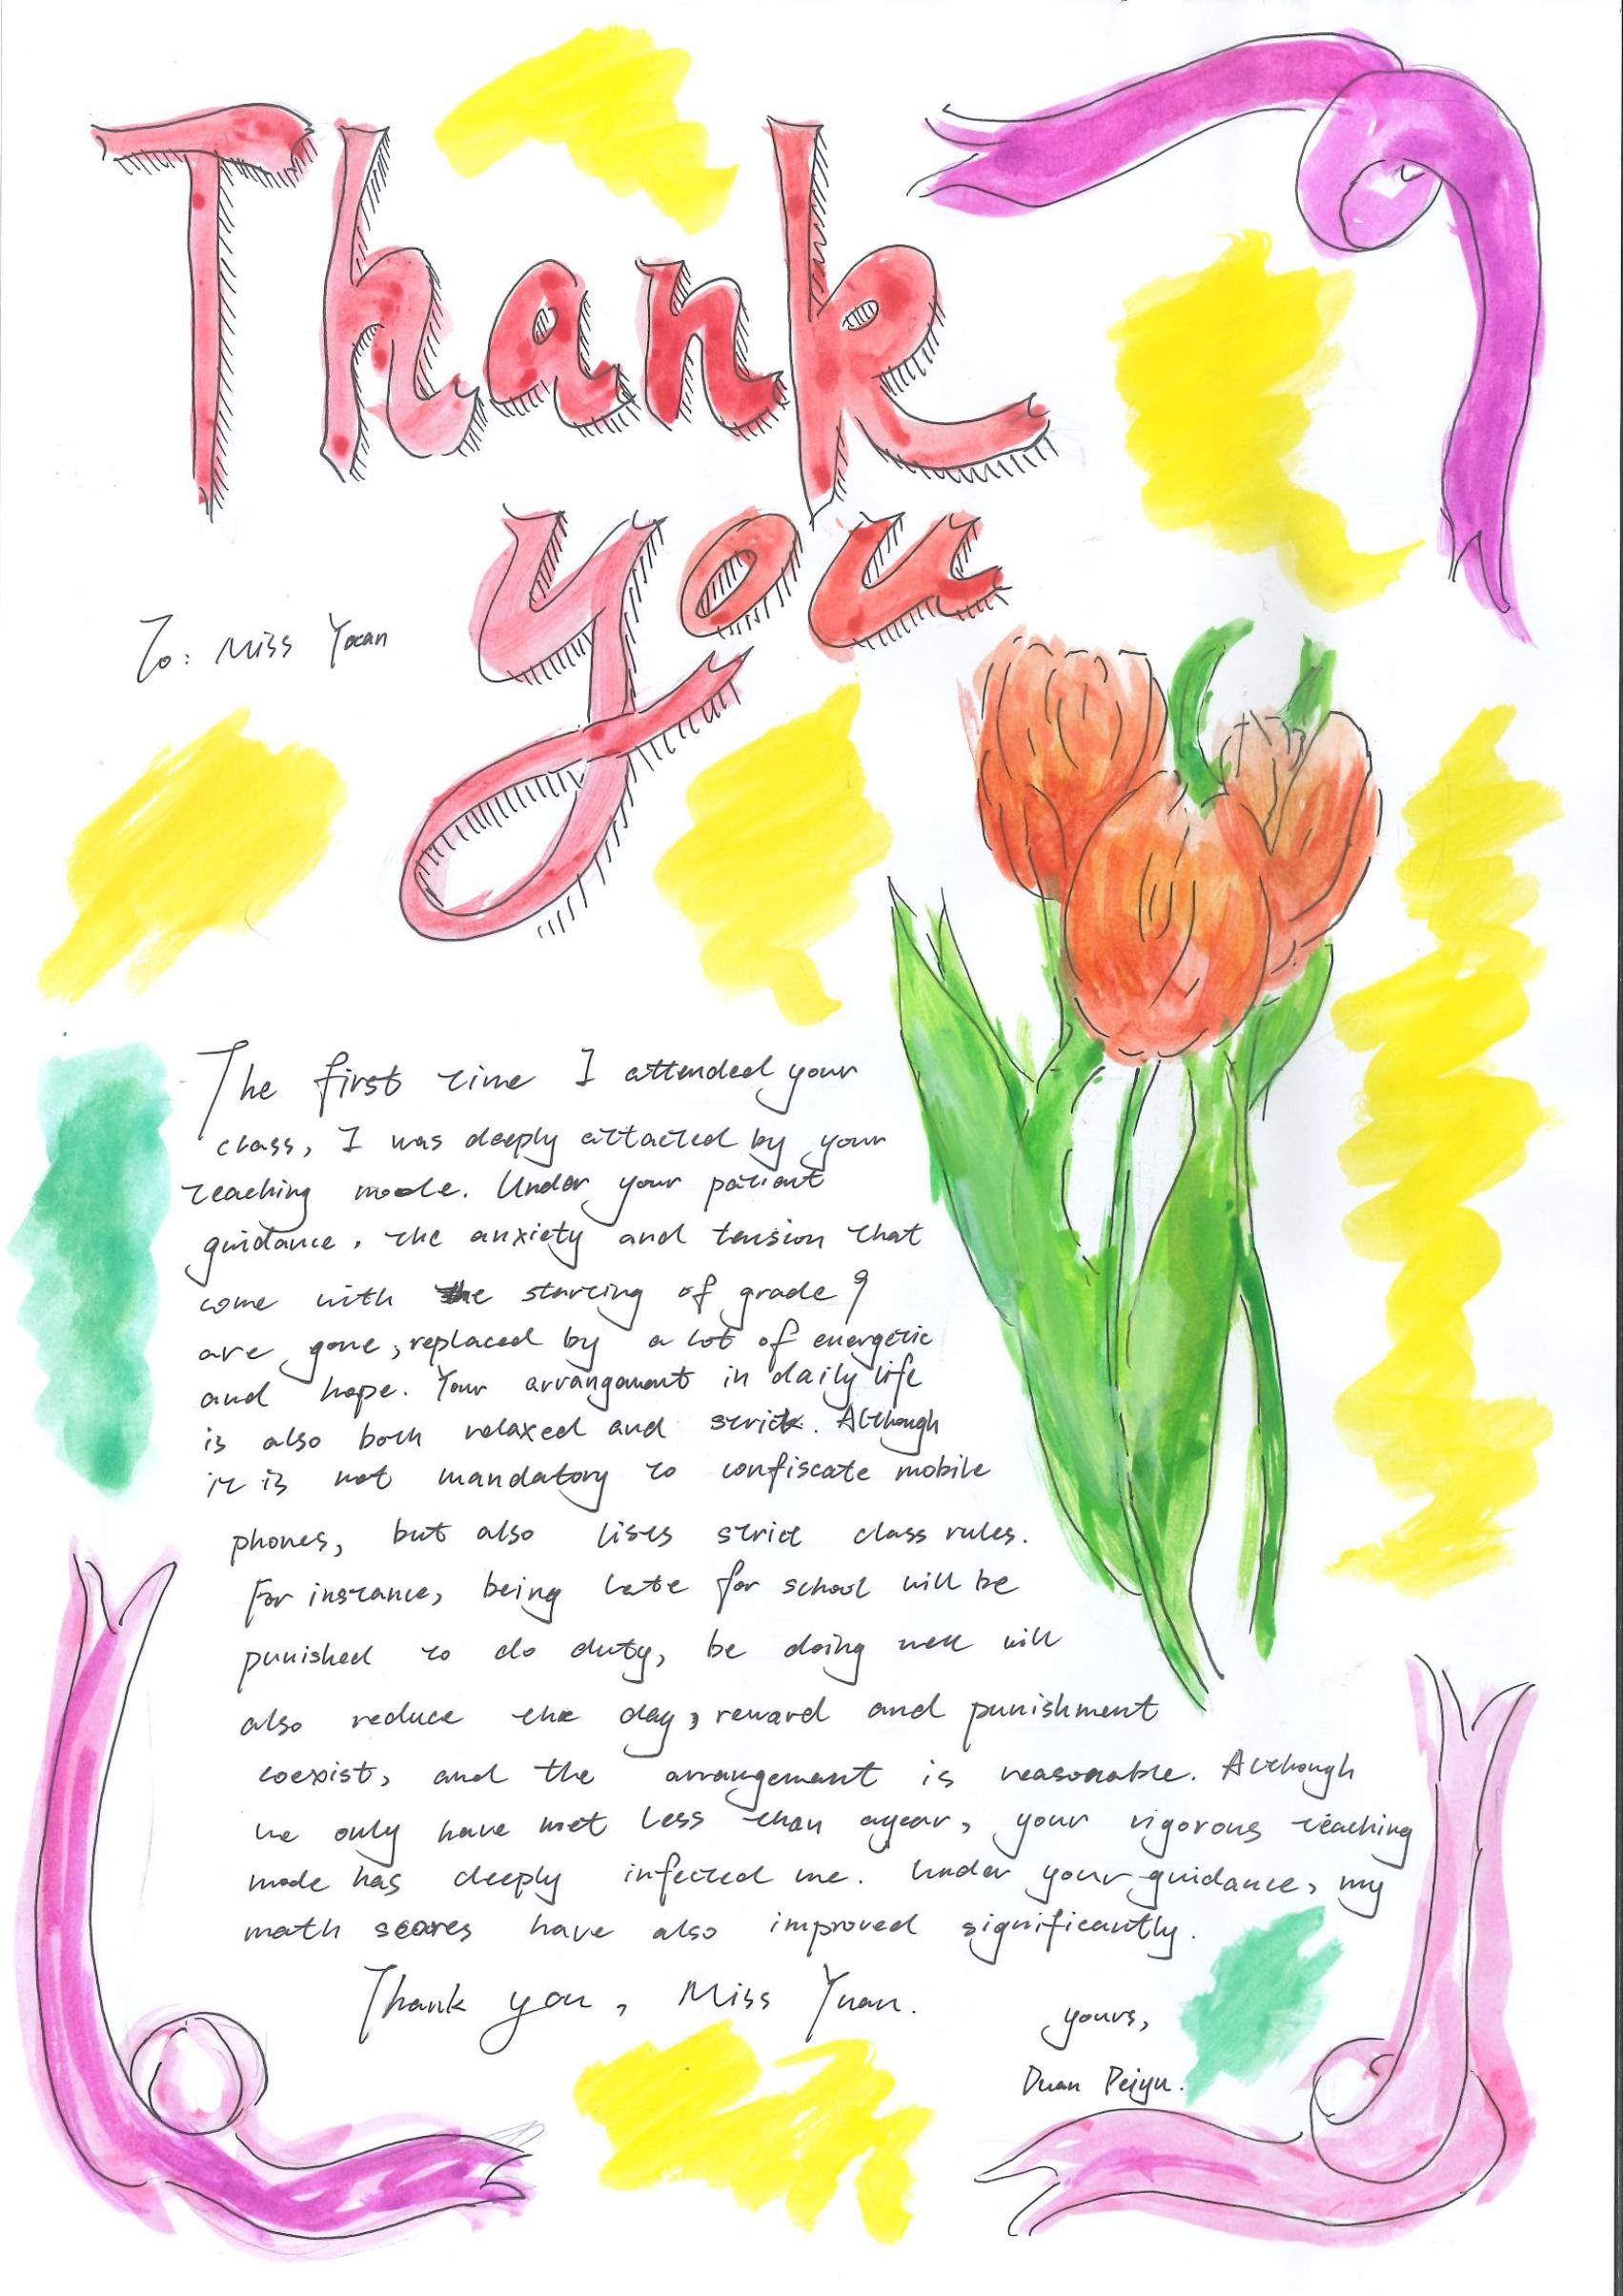 Thank
you
To: Miss Yuan
The first time I attended your
class, I was deeply attacted by your
teaching mode. Under your patient
guidance, the anxiety and tension that
come with the starting of grade 9
are gone, replaced by a lot of energetic
and hope. Your arrangement in daily life
is also both relaxed and strict. Although
it is not mandatory to confiscate mobile
phones, but also lists strict class rules.
For instance, being late for school will be
punished to do duty, be doing well will
also reduce the day, reward and punishment
coexist, and the arrangement is reasonable. Although
we only have met less than a year, your rigorous teaching
mode has deeply infected me. Under your guidance, my
math scores have also improved significantly.
Thank you, Miss Yuan.
yours,
Duan Peiyu.